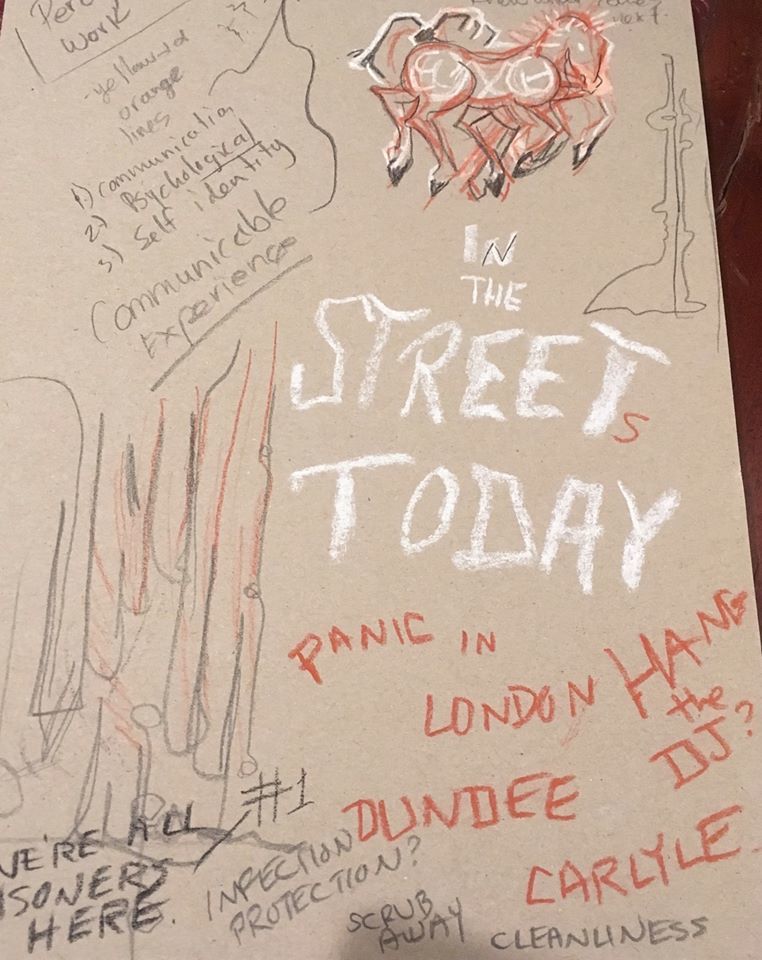 work
next.
yellow +
orange
lines
1) communication
2) Psychological
3) Self identity
Communicable
Experience
IN
THE
STREETs
TODAY
PANIC IN
LONDON
HANG
the
DJ?
DUNDEE
CARLYLE.
#1
WE'RE ALL
ISONERS
HERE.
INPECTION
PROTECTION?
SCRUB
AWAY
CLEANLINESS